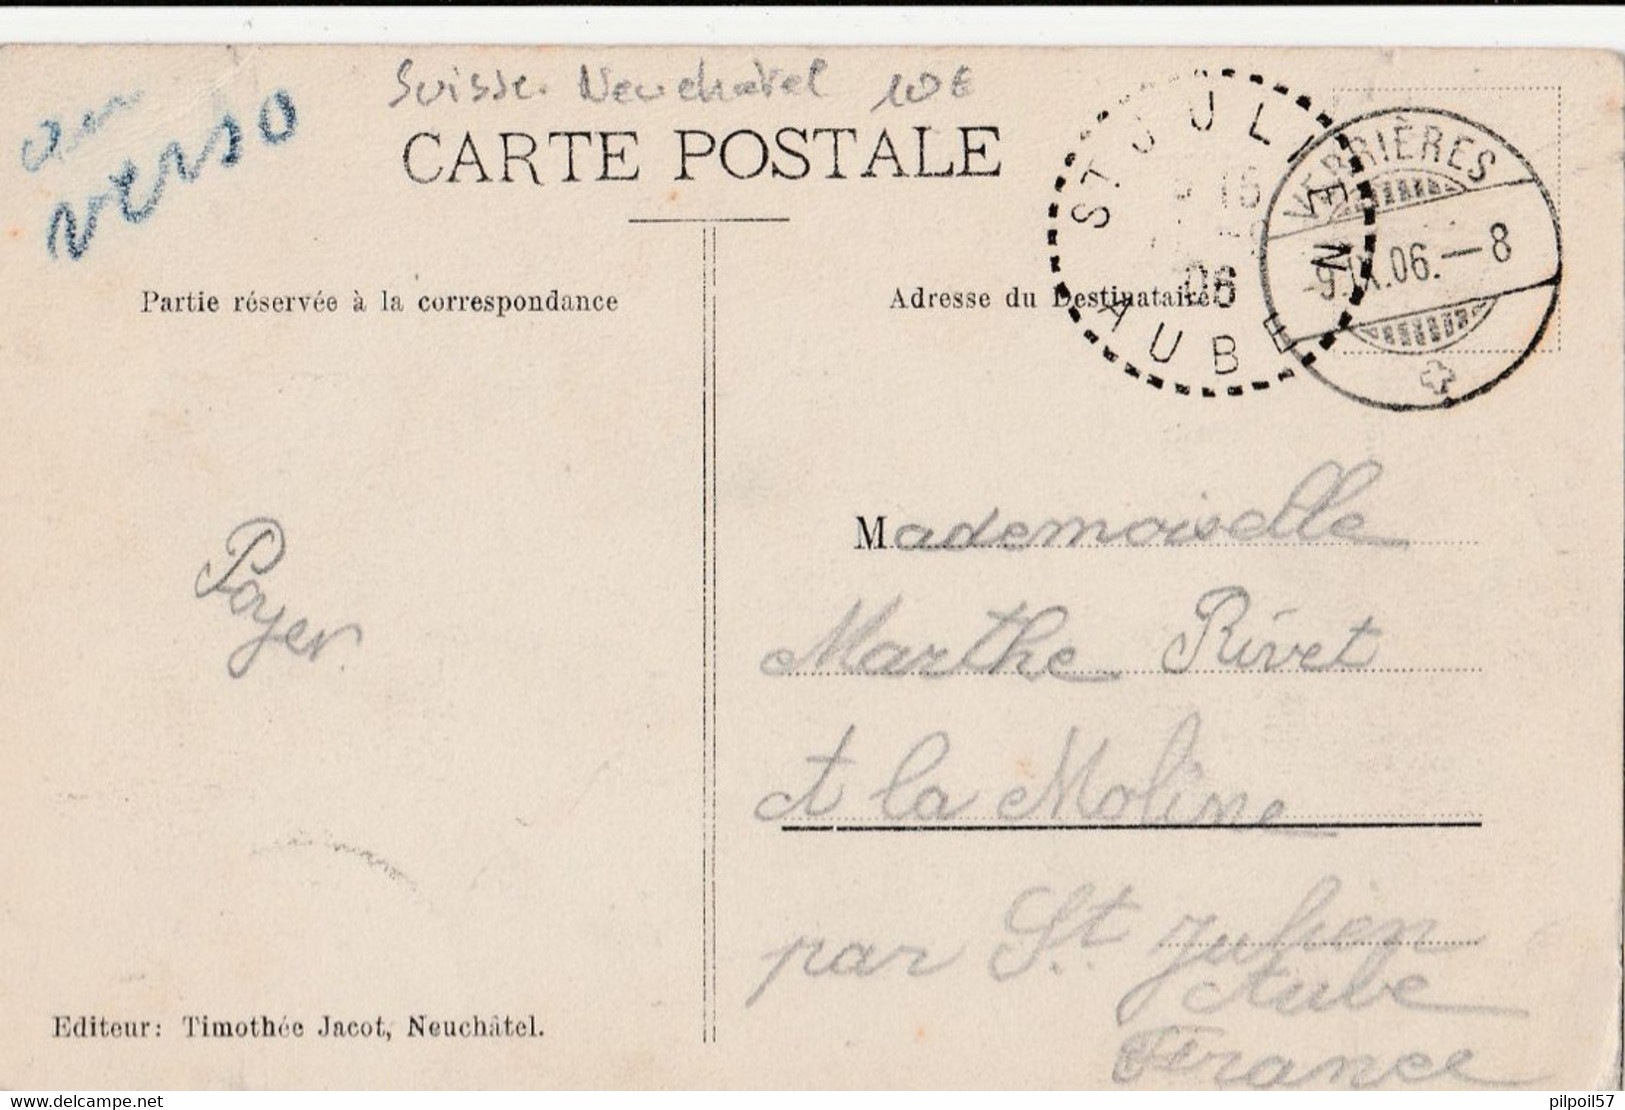 Suisse. Neuchatel 10€
au
verso
CARTE POSTALE
ST JULIEN
15
06
AUBE
VERRIÈRES
-9.IX.06.-8
Partie réservée à la correspondance
Adresse du Destinataire
Mademoiselle
Payer
Marthe Rivet
à la Moline
par St. Julien
Aube
France
Editeur: Timothée Jacot, Neuchâtel.
delcampe.net
pilpoil57